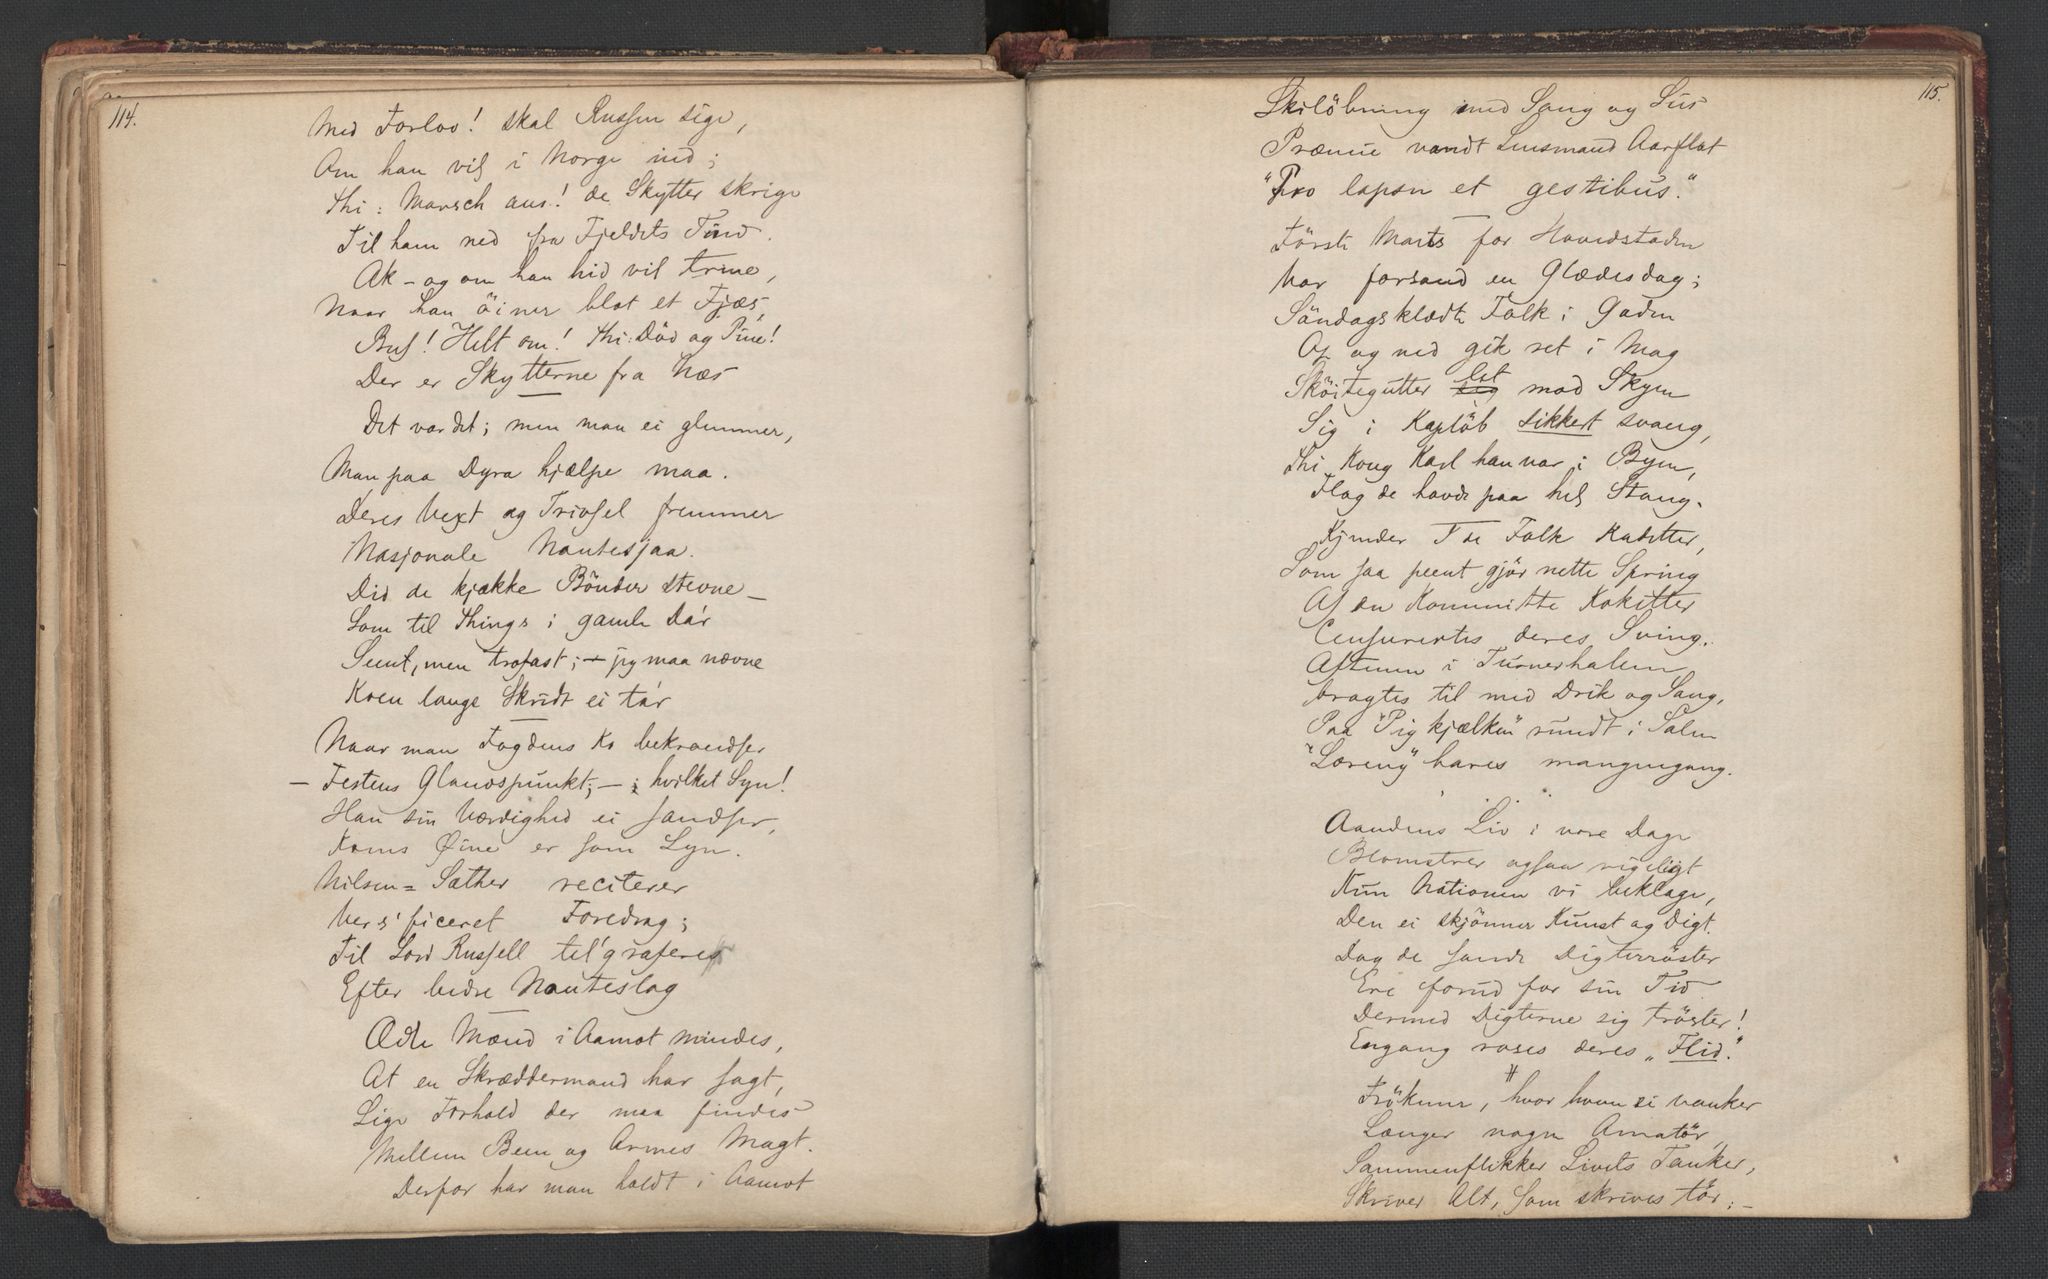 114.
Med Forlov! skal Russen sige,
Om han vil i Norge ind;
Thi: Marsch aus! de Skytter skrige
Til ham ned fra Fjeldets Tind.
Ak - og om han hid vil trine,
Naar han öiner blot et Fjæs,
Buf! Helt om! thi: Död og Pine!
Der er Skytterne fra Næs
Det var det; men man ei glemmer,
Man paa Dyra hjælpe maa.
Deres Vext og Trivsel fremmer
Nasjonale Nautesjaa.
Did de kjække Bönder stevne -
Som til Things i gamle Da'r
Seent, men trofast; - jeg maa nævne
Koen lange Skridt ei ta'r
Naar man Fogdens Ko bekrandser
- Festens Glandspunkt; - hvilket Syn!
Han sin Værdighed ei sandser,
Koens Øine er som Lyn.
Nilsen = Sæther reciterer
Versificeret Foredrag;
Til Lord Russell tel'graferes
Efter bedre Nauteslag
Ædle Mænd i Aamot mindes,
At en Skræddermand har sagt,
Lige Forhold der maa findes
Mellem Been og Armes Magt.
Derfor har man holdt i Aamot
115.
Skilöbning med Sang og Sus
Præmie vandt Lensmand Aarflot
"Pro lapsu et gestibus."
Förste Marts for Hovedstaden
Var forsand en Glædesdag;
Söndagsklædte Folk i Gaden
Op og ned gik ret i Mag
Sköitegutter let mod Skyen
Sig i Kaplöb sikkert svang,
Thi Kong Karl han var i Byen,
Flag de havde paa hel Stang.
Kjender I de Folk Kadetter,
Som saa peent gjör nette Spring
Af en Kommitte Koketter
Censurertes deres Sving.
Aftenen i Turnerhalen
bragtes til med Drik og Sang,
Paa "Pigkjælken" rundt i Salen
"Loreng" bares mangengang.
Aandens Liv i vore Dage
Blomstrer ogsaa rigeligt
Kun Nationen vi beklage,
Den ei skjönner Kunst og Digt.
Dog de sande Digterröster
Ere forud for sin Tid
Dermed Digterne sig tröster!
Engang roses deres "Flid."
Frökener, hvor hvem ei vanker
Længer nogen Amatör,
Sammenflikker Livets Tanker,
Skriver Alt, som skrives tör; -